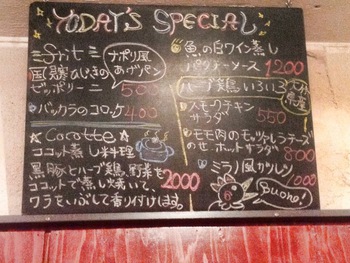 TODAY'S SPECIAL
Frit
ナポリ風
あげパン
ゼッポリーニ 500
バッカラのコロッケ 400
☆Cocotte☆
ココット蒸し料理
黒豚とハーブ鶏、野菜を 2000
ココットで蒸し焼いて、
ワラをいぶして香り付けます。
魚の白ワイン蒸し
バターソース 1200
ハーブ鶏いろいろ
スモークチキン
サラダ 550
モモ肉のモッツァレラチーズ
のせ ホットサラダ 800
ミラノ風カツレツ 1000
Buono!